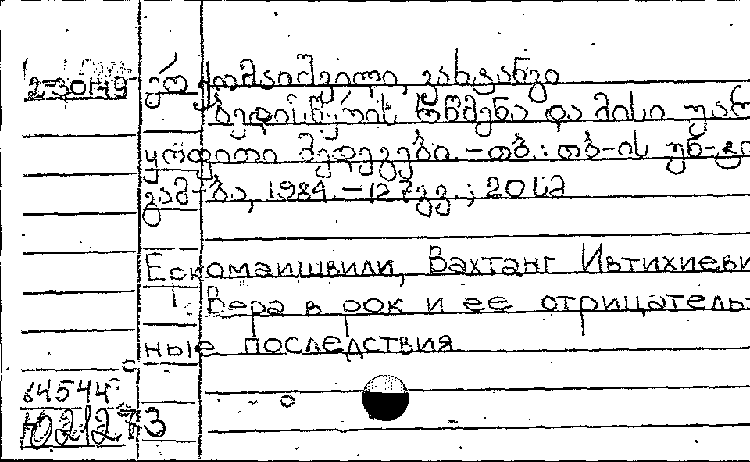 2-30149 ერქომაიშვილი, ვახტანგ
ბედისწერის რწმენა და მისი უარ
ყოფითი შედეგები. - თბ.: თბ-ის უნ-ტი
გამ-ბა, 1984. - 127 გვ.; 20 სმ
Еркомаишвили, Вахтанг Ивтихиеви
1. Вера в рок и ее отрицатель
ные последствия
Ю21273